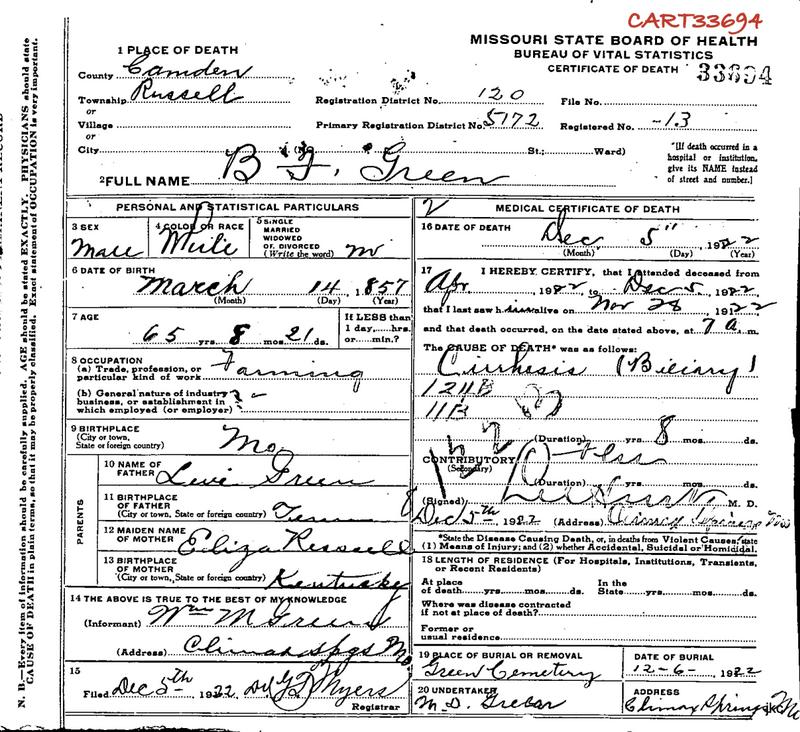 CART33694
MISSOURI STATE BOARD OF HEALTH
BUREAU OF VITAL STATISTICS
CERTIFICATE OF DEATH 33694
1 PLACE OF DEATH
County Camden
Township Russell Registration District No. 120 File No.
or
Village Primary Registration District No. 5172 Registered No. -13
or
City (No. St.; Ward)
[If death occurred in a
hospital or institution,
give its NAME instead
of street and number.]
2 FULL NAME B F. Green
PERSONAL AND STATISTICAL PARTICULARS
3 SEX Male
4 COLOR OR RACE White
5 SINGLE
MARRIED
WIDOWED
OR DIVORCED
(Write the word) M
6 DATE OF BIRTH March 14 1857
(Month) (Day) (Year)
7 AGE 65 yrs. 8 mos. 21 ds.
If LESS than
1 day,......hrs.
or......min.?
8 OCCUPATION
(a) Trade, profession, or
particular kind of work Farming
(b) General nature of industry
business, or establishment in
which employed (or employer)
9 BIRTHPLACE
(City or town,
State or foreign country) Mo
PARENTS
10 NAME OF
FATHER Levi Green
11 BIRTHPLACE
OF FATHER
(City or town, State or foreign country) Tenn
12 MAIDEN NAME
OF MOTHER Eliza Russell
13 BIRTHPLACE
OF MOTHER
(City or town, State or foreign country) Kentucky
14 THE ABOVE IS TRUE TO THE BEST OF MY KNOWLEDGE
(Informant) Wm M Green
(Address) Climax Spgs Mo
15
Filed Dec 5th 1922 Myers
Registrar
2 MEDICAL CERTIFICATE OF DEATH
16 DATE OF DEATH Dec 5" 1922
(Month) (Day) (Year)
17 I HEREBY CERTIFY, that I attended deceased from
Apr 1922 to Dec 5, 1922
that I last saw him alive on Nov 28 1922
and that death occurred, on the date stated above, at 7 a. m.
The CAUSE OF DEATH* was as follows:
Cirrhosis (Biliary)
124B
11B
(Duration) yrs. 8 mos. ds.
CONTRIBUTORY
(Secondary)
(Duration) yrs. mos. ds.
(Signed) M. D.
Dec 5th 1922 (Address) Climax Springs Mo
*State the Disease Causing Death, or, in deaths from Violent Causes, state
(1) Means of Injury; and (2) whether Accidental, Suicidal or Homicidal.
18 LENGTH OF RESIDENCE (For Hospitals, Institutions, Transients,
or Recent Residents)
At place In the
of death......yrs......mos......ds. State......yrs......mos......ds.
Where was disease contracted
if not at place of death?
Former or
usual residence
19 PLACE OF BURIAL OR REMOVAL DATE OF BURIAL
Green Cemetery 12-6- 1922
20 UNDERTAKER ADDRESS
M. D. Climax Springs Mo
N. B.—Every item of information should be carefully supplied. AGE should be stated EXACTLY. PHYSICIANS should state
CAUSE OF DEATH in plain terms, so that it may be properly classified. Exact statement of OCCUPATION is very important.